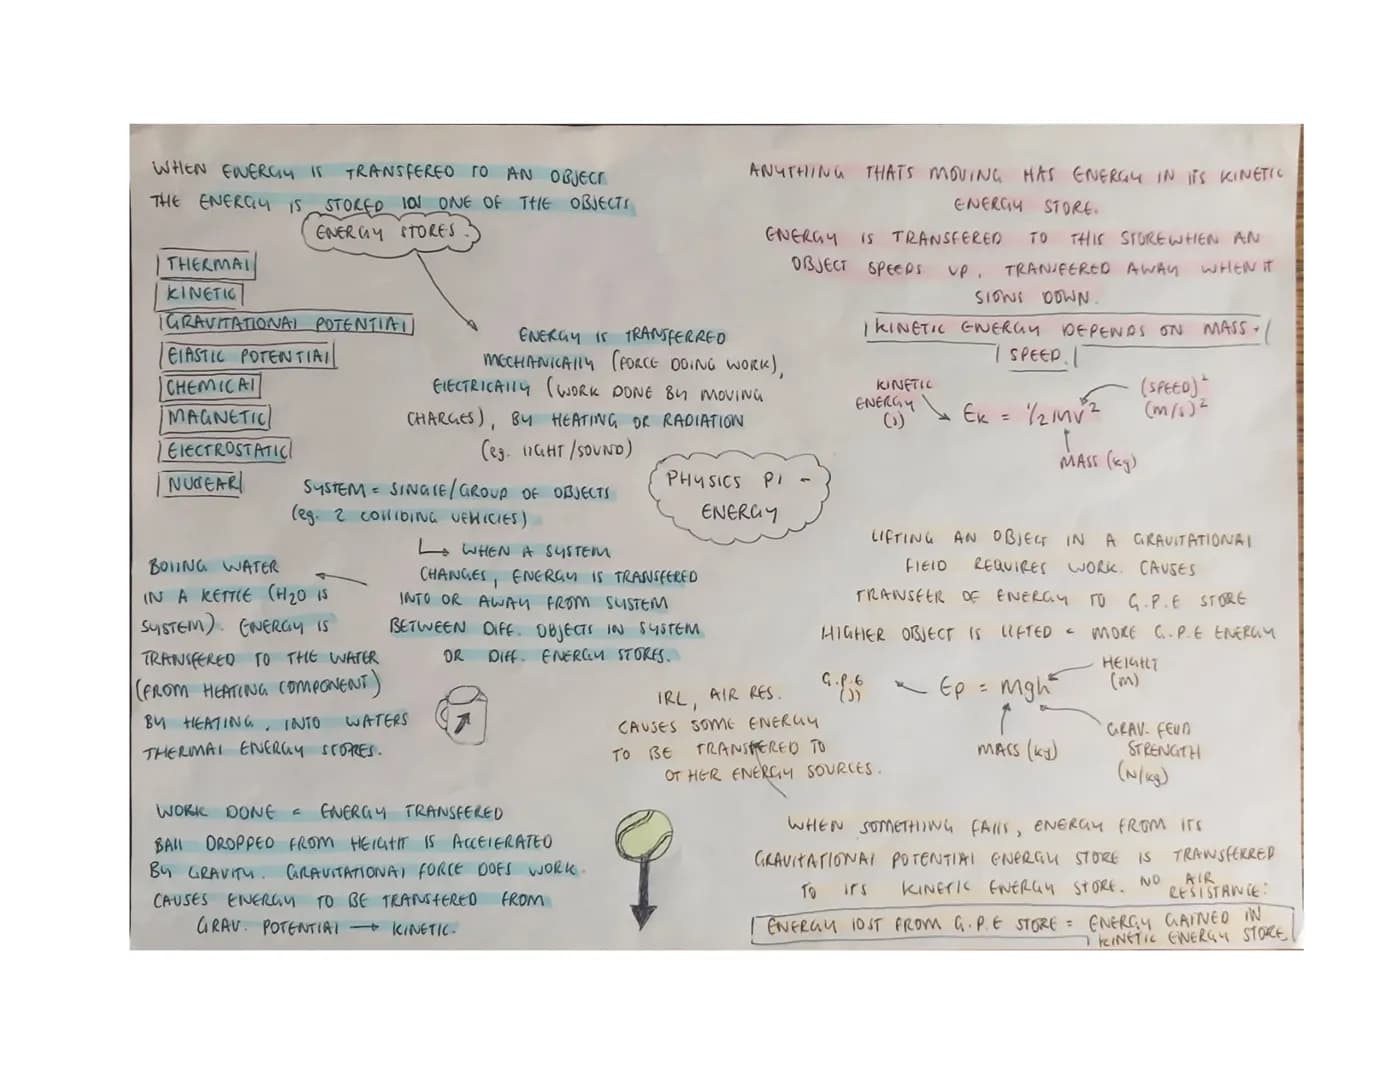 WHEN ENERGY IS TRANSFERED TO AN OBJECT
THE ENERGY IS STORED IN ONE OF THE OBJECTS
ENERGY STORES.
THERMAL
KINETIC
GRAVITATIONAL POTENTIAL
ELASTIC POTENTIAL
CHEMICAL
MAGNETIC
ELECTROSTATIC
NUCEAR
ENERGY IS TRANSFERRED
MECHANICALLY (FORCE DOING WORK),
ELECTRICALLY (WORK DONE BY MOVING
CHARGES), BY HEATING OR RADIATION
(eg. LIGHT/SOUND)
SYSTEM = SINGLE/GROUP OF OBJECTS
(eg. 2 COLLIDING VEHICLES)
↳ WHEN A SYSTEM
CHANGES, ENERGY IS TRANSFERED
INTO OR AWAY FROM SYSTEM
BETWEEN DIFF. OBJECTS IN SYSTEM
OR DIFF. ENERGY STORES.
BOILING WATER
IN A KETTLE (H2O IS
SYSTEM). ENERGY IS
TRANSFERED TO THE WATER
(FROM HEATING COMPONENT)
BY HEATING, INTO WATERS
THERMAL ENERGY STORES.
WORK DONE = ENERGY TRANSFERED
BALL DROPPED FROM HEIGHT IS ACCELERATED
BY GRAVITY. GRAVITATIONAL FORCE DOES WORK.
CAUSES ENERGY TO BE TRANSFERED FROM
GRAV. POTENTIAL → KINETIC.
PHYSICS P1 -
ENERGY
ANYTHING THATS MOVING HAS ENERGY IN ITS KINETIC
ENERGY STORE.
ENERGY IS TRANSFERED TO THIS STORE WHEN AN
OBJECT SPEEDS UP, TRANSFERED AWAY WHEN IT
SLOWS DOWN.
KINETIC ENERGY DEPENDS ON MASS +
SPEED.
KINETIC
ENERGY
(J)
Ek = 1/2 MV²
(SPEED)²
(m/s)²
MASS (kg)
LIFTING AN OBJECT IN A GRAVITATIONAL
FIELD REQUIRES WORK. CAUSES
TRANSFER OF ENERGY TO G.P.E STORE
HIGHER OBJECT IS LIFTED = MORE G.P.E ENERGY
G.P.E
(J)
Ep = Mgh
HEIGHT
(m)
MASS (kg)
GRAV. FEILD
STRENGTH
(N/kg)
IRL, AIR RES.
CAUSES SOME ENERGY
TO BE TRANSFERED TO
OTHER ENERGY SOURCES.
WHEN SOMETHING FALLS, ENERGY FROM ITS
GRAVITATIONAL POTENTIAL ENERGY STORE IS TRANSFERRED
TO ITS KINETIC ENERGY STORE. NO AIR
RESISTANCE:
ENERGY LOST FROM G.P.E STORE = ENERGY GAINED IN
KINETIC ENERGY STORE